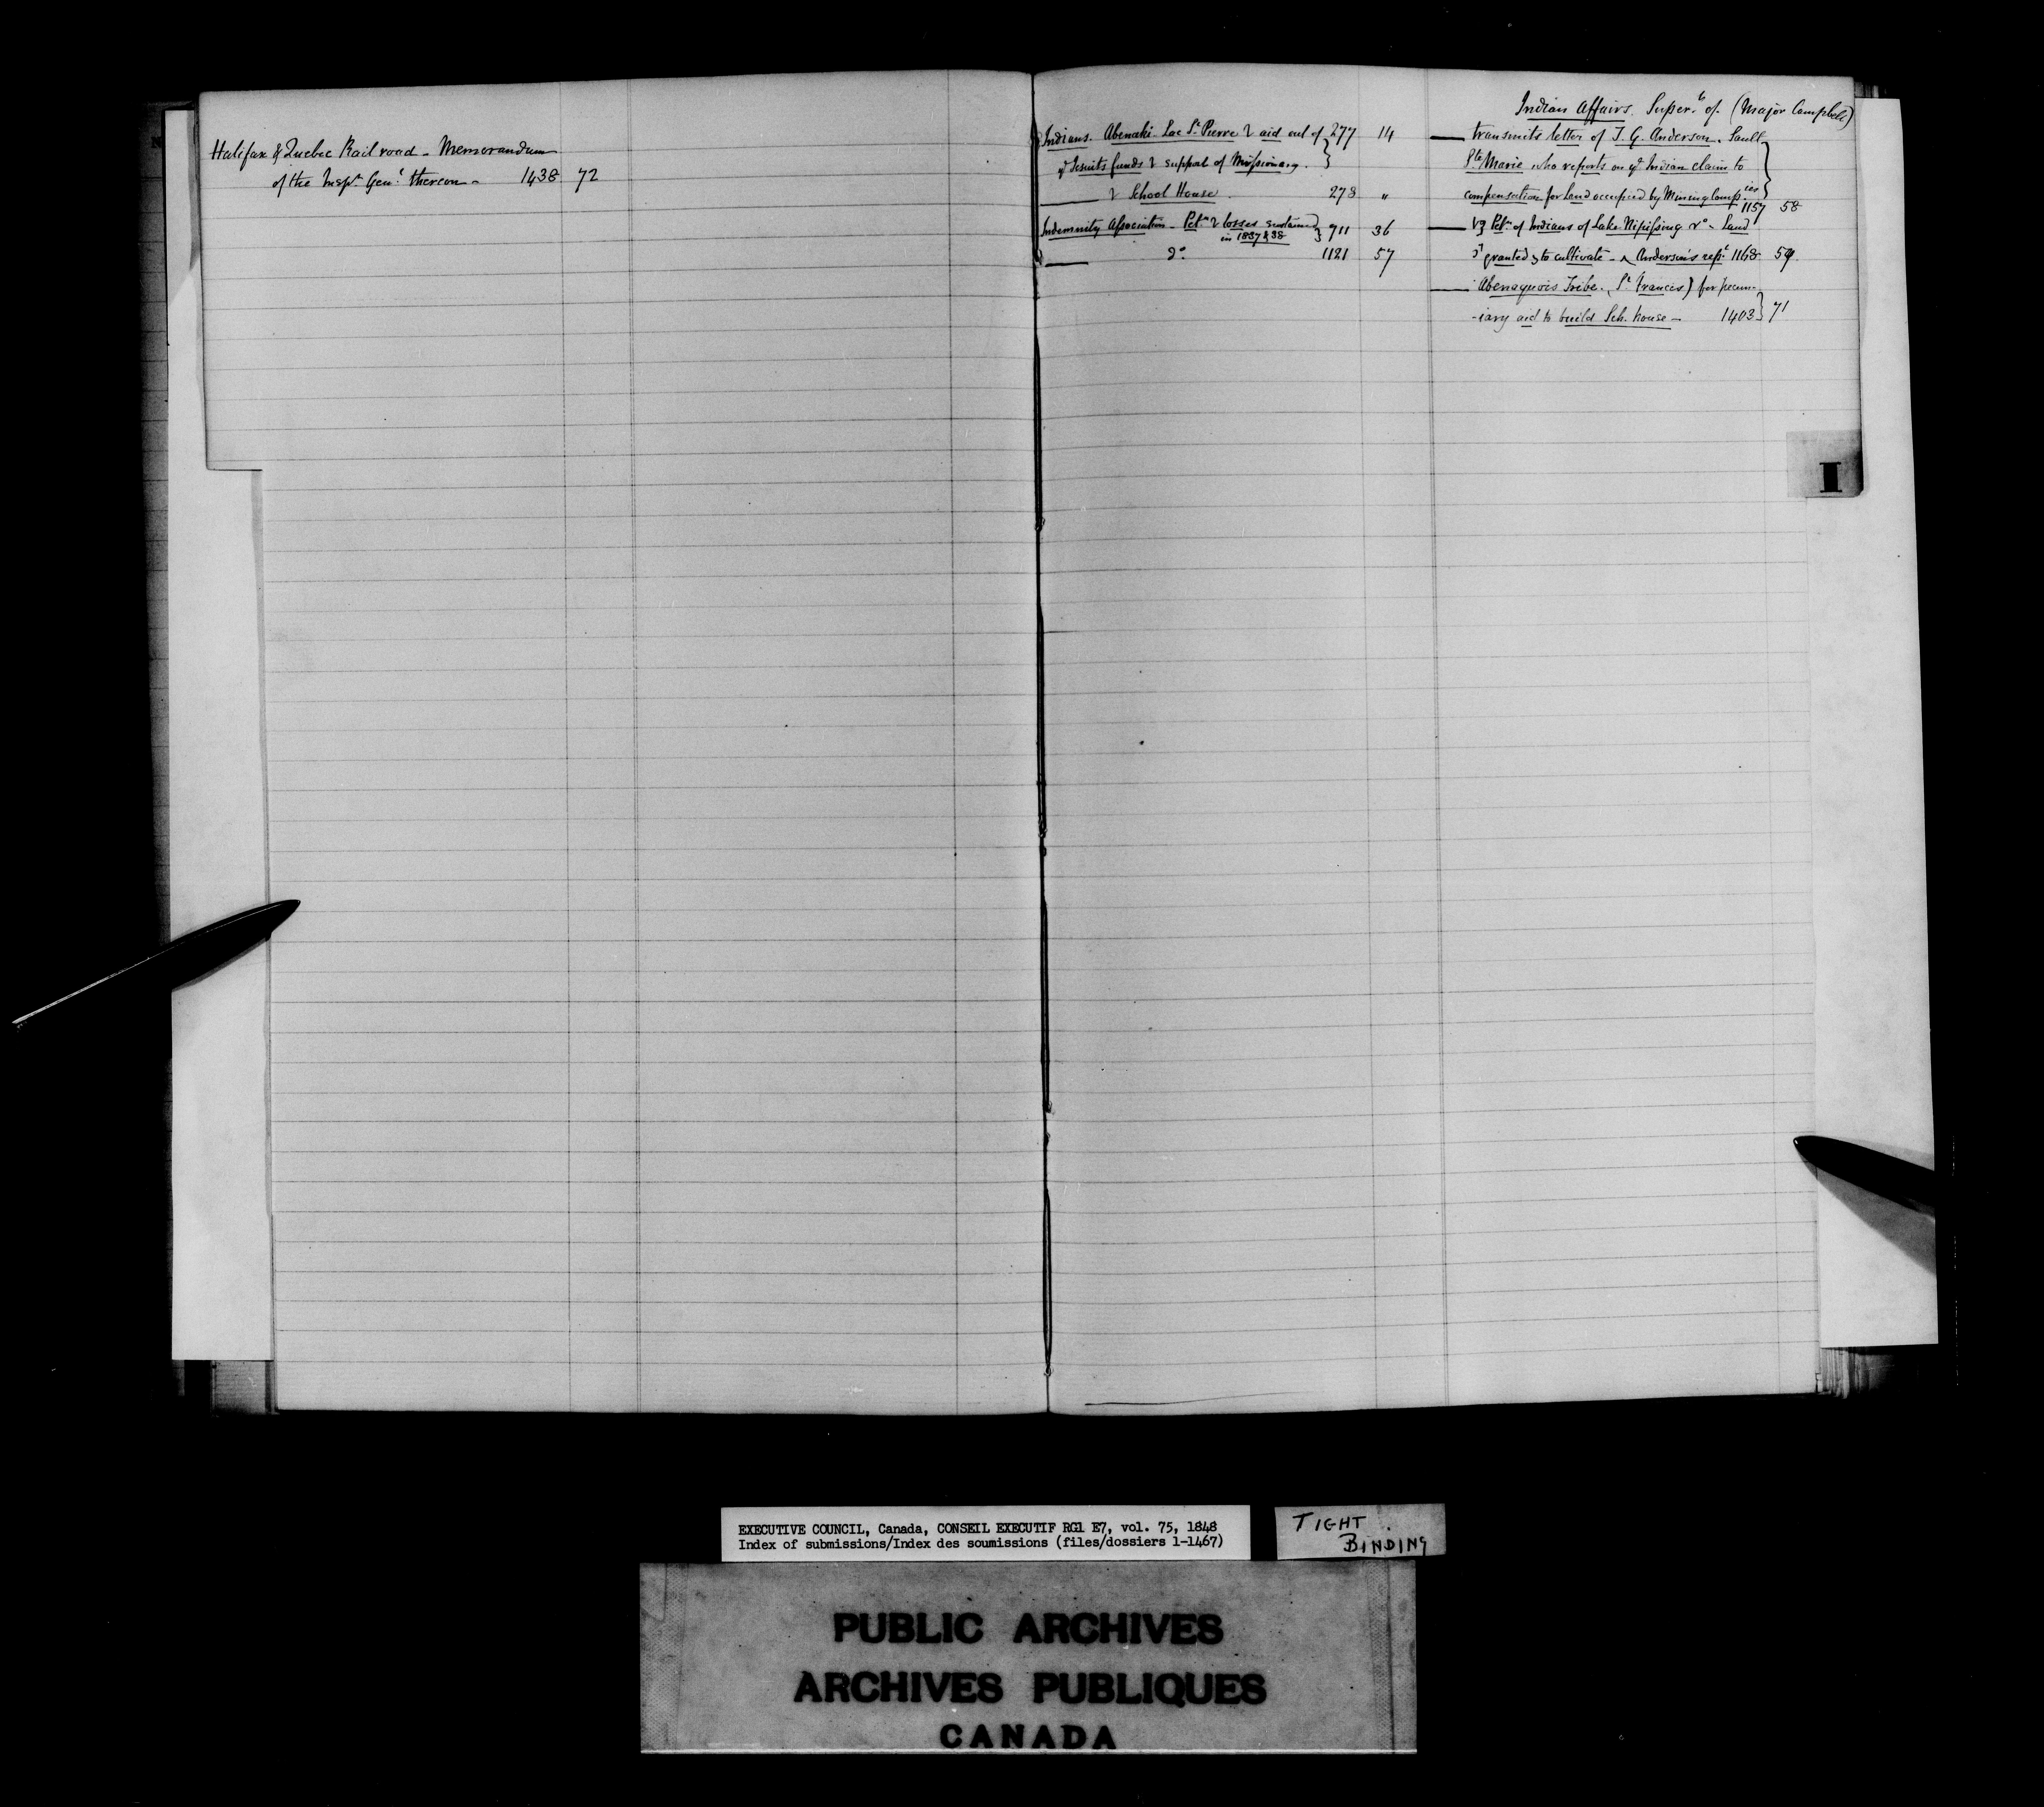 Halifax & Quebec Rail road - Memorandum
of the Insp.r Gen.l thereon - 1438 72
Indians. Abenaki Lac St. Pierre & aid out of 277 14
yt Jesuits funds & support of Missionary.
& School House 278 "
Indemnity Association - Petn & losses sustained 911 36
in 1837 & 38
Do 1121 57
Indian Affairs. Super.t of. (Major Campbell)
transmits letter of T. G. Anderson. Sault
Ste Marie who reports on yt Indian claim to
compensation for Land occupied by Mining Comps.ies
1157 58
Petn of Indians of Lake Nipissing Land
granted to cultivate - Anderson's rept 1168 59
Abenaquois Tribe. (St Francis) for pecun-
-iary aid to build Sch. house - 1403 71
I
EXECUTIVE COUNCIL, Canada, CONSEIL EXECUTIF RG1 E7, vol. 75, 1848
Index of submissions/Index des soumissions (files/dossiers 1-1467)
TIGHT
BINDING
PUBLIC ARCHIVES
ARCHIVES PUBLIQUES
CANADA